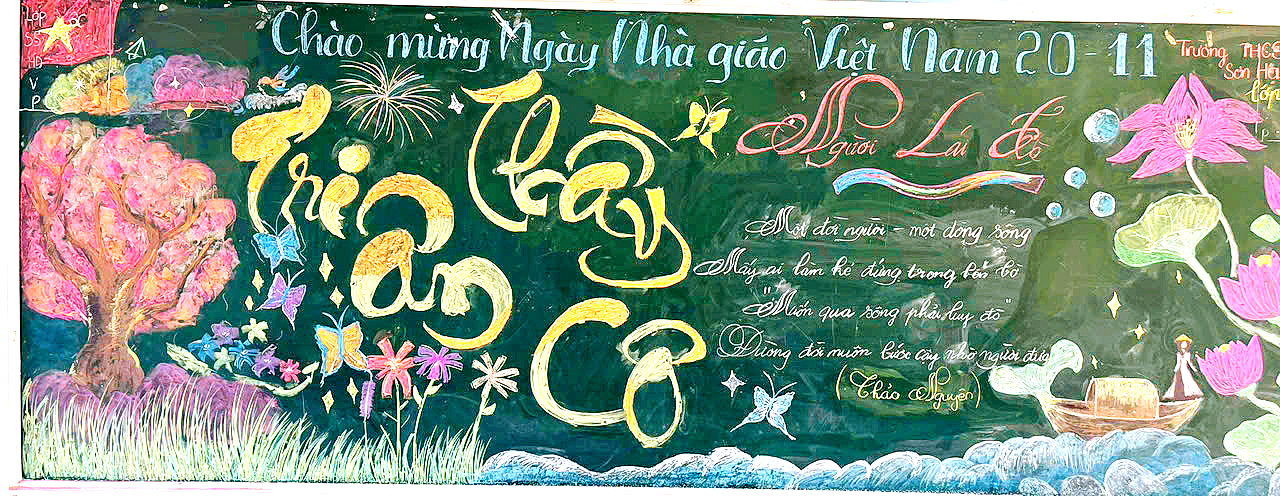 Lớp
HD
V
P
Chào mừng Ngày Nhà giáo Việt Nam 20-11
Trường THCS
Sơn
lớp
Tri Ân
Thầy Cô
Người Lái Đò
Một đời người - một dòng sông
Mấy ai làm kẻ đứng trong bến bờ
"Muốn qua sông phải lụy đò"
Đường đời muôn bước cậy nhờ người đưa
(Thảo Nguyên)